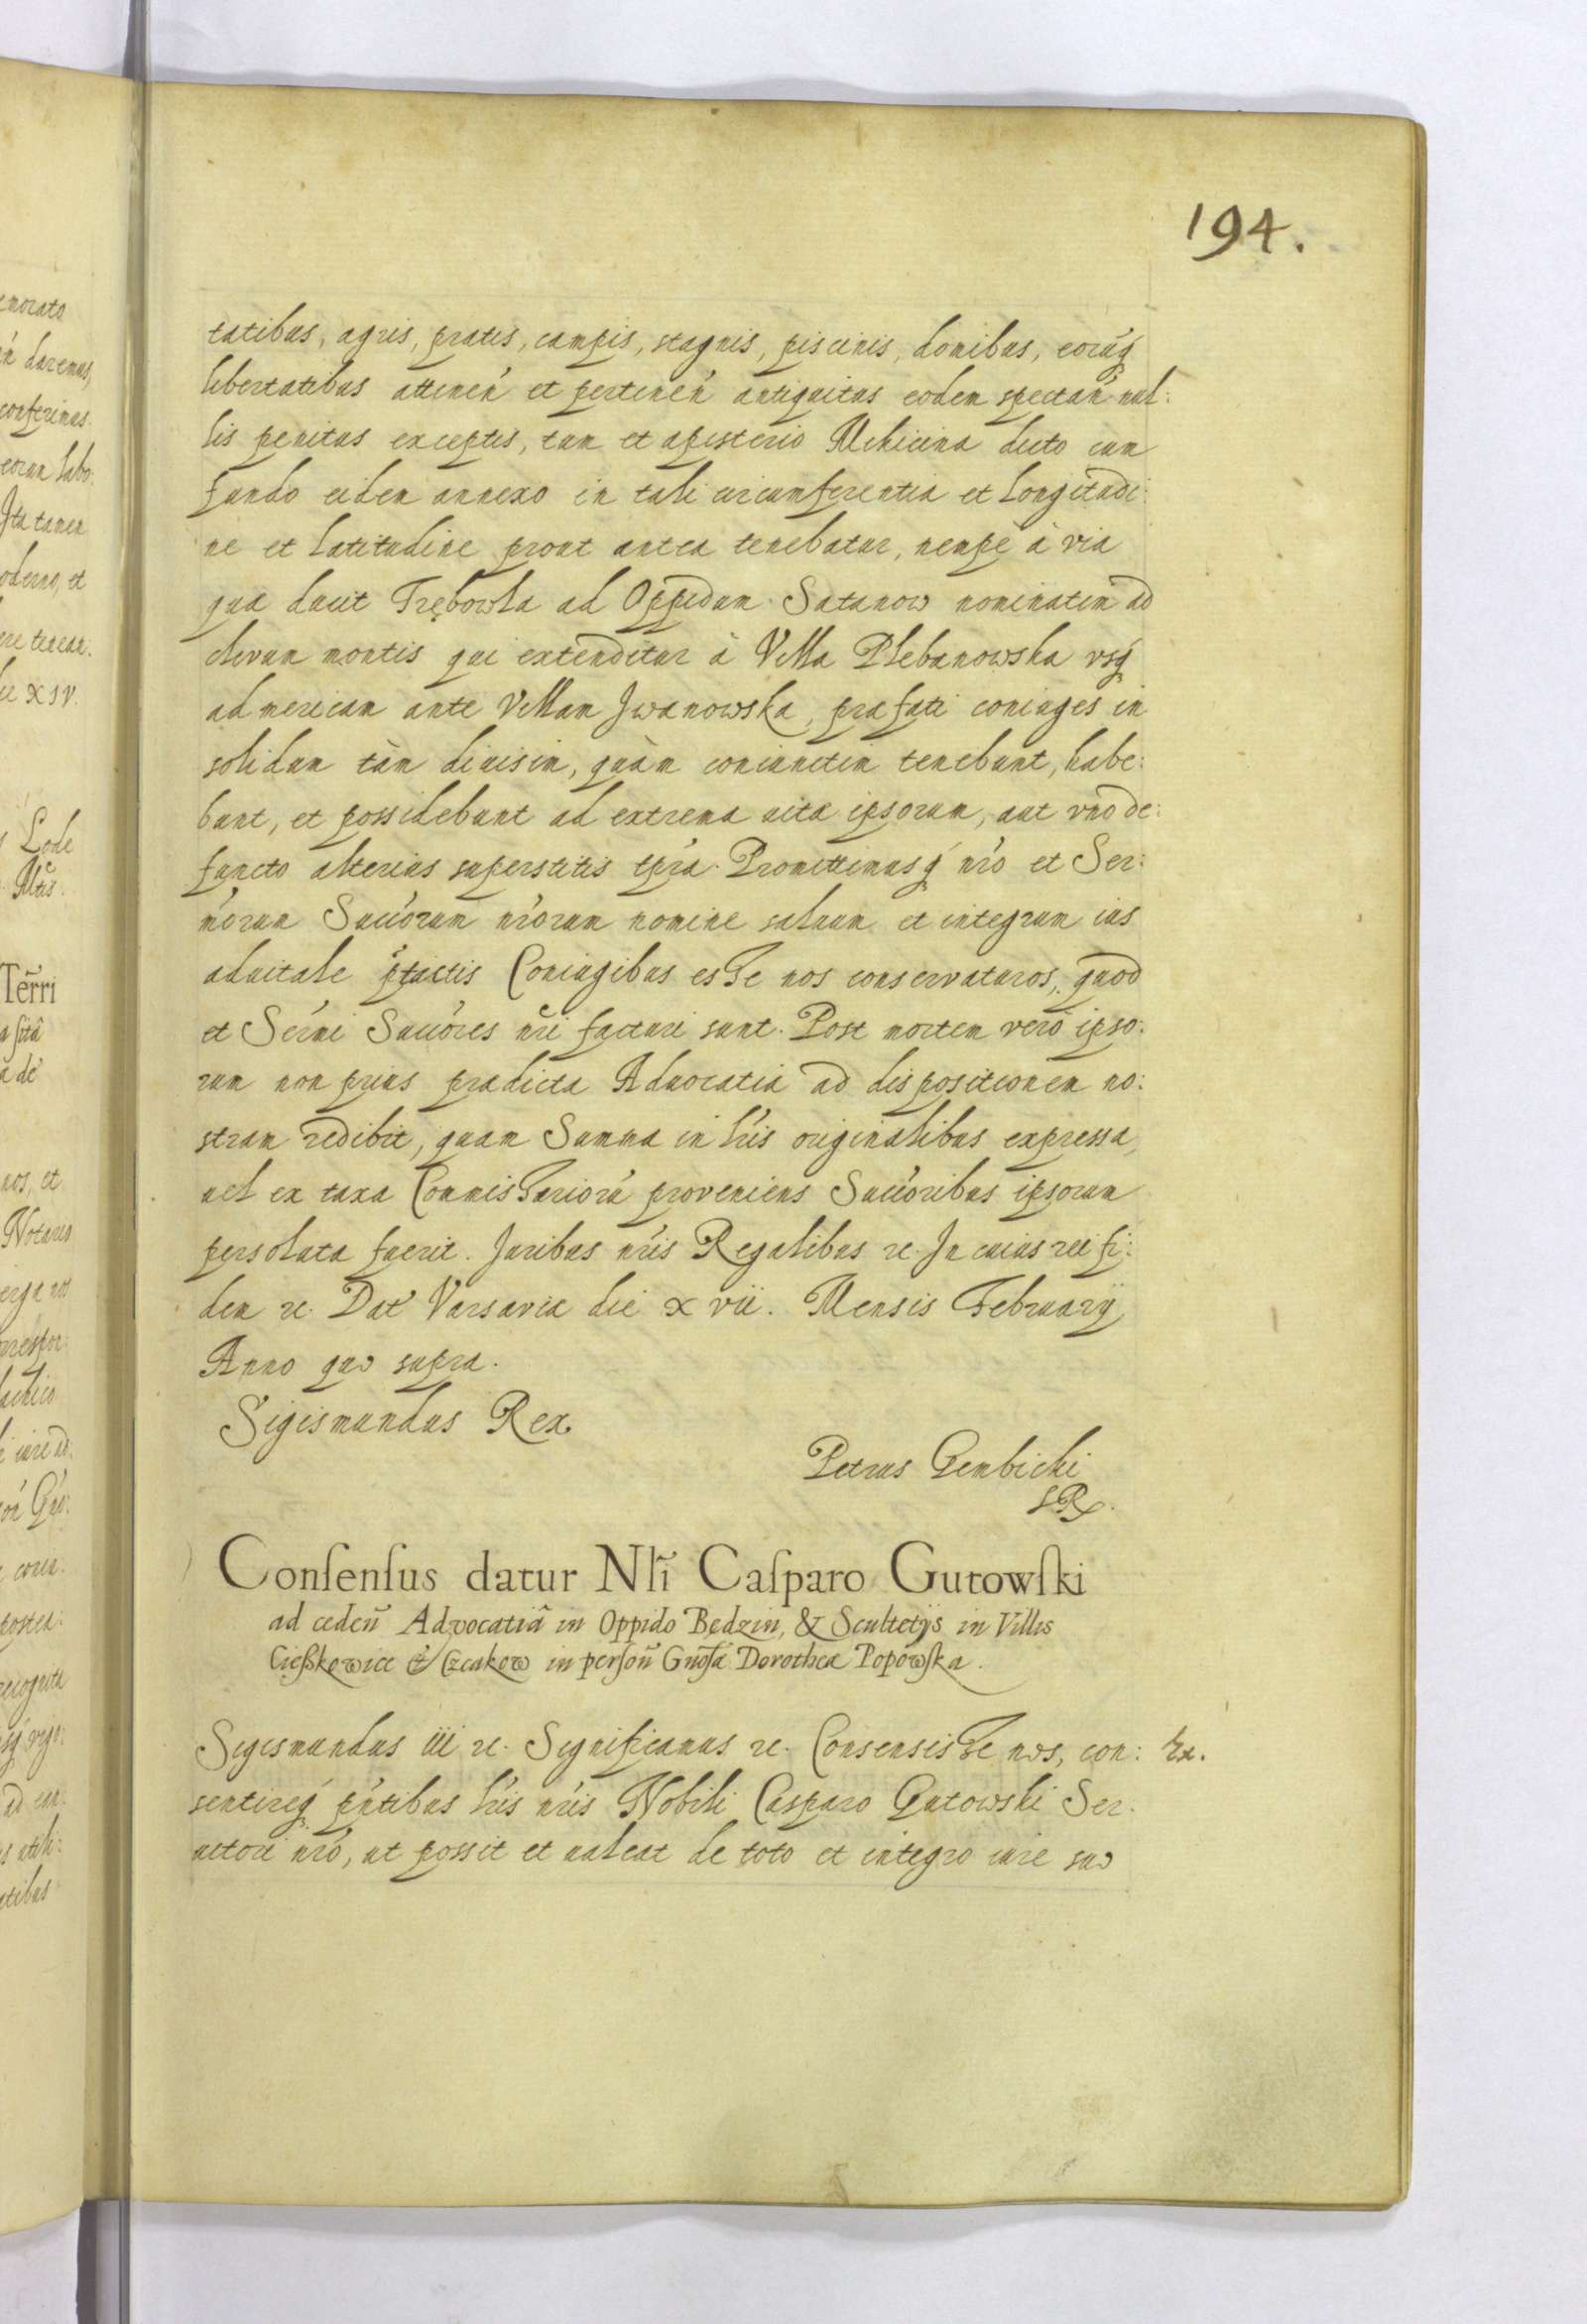 194.
tatibus, agris, pratis, campis, stagnis, piscinis, domibus, eorúq
libertatibus attinen̄ et pertinen̄ antiquitus eodem spectan̄ nul:
lis penitus exceptis, tum et apisterio Mchicina dicto cum
fundo eidem annexo in tali circumferentia et longitudi:
ne et latitudine prout antea tenebatur, nempe à via
qua ducit Trębowla ad Oppidum Satanow nominatim ad
clivum montis qui extenditur à Villa Plebanowska vsq
ad mericam ante Villam Jwanowska, præfati coniuges in
solidum tàm diuisim, quàm coniunctim tenebunt, habe:
bunt, et possidebunt ad extrema uitæ ipsorum, aut vno de:
functo alterius superstitis tp̄ra. Promittimusq nr̄o et Ser:
mōrum Succ̄orum nr̄orum nomine saluum et integrum ius
aduitale p̄factis Coniugibus esse nos conservaturos, quod
et Ser̄mi Succ̄ores nr̄i facturi sunt. Post mortem verò ipso:
rum non prius prædicta Aduocatia ad dispositionem no:
stram redibit, quam Summa in lr̄is originalibus expressa,
uel ex taxa Commissariorū proveniens Succ̄oribus ipsorum
persoluta fuerit. Juribus nr̄is Regalibus rc. Jn cuius rei fi:
dem rc. Dat Varsaviæ die xvii. Mensis February
Anno quo supra.
Sigismundus Rex
Petrus Gembicki
SR.
Conſenſus datur Nl̃i Caſparo Gutowſki
ad ceden̄ Advocatiā in Oppido Będzin, & Scultetijs in Villis
Cießkowice & Czeakow in perſon̄ Gn̄oſæ Dorotheæ Popowſka.
Sigismundus iii rc. Significamus rc. Consensisse nos, con:
Ex.
sentireq p̄ntibus lr̄is nr̄is Nobili Casparo Gutowski Ser:
uitori nr̄o, ut possit et ualeat de toto et integro iure suo